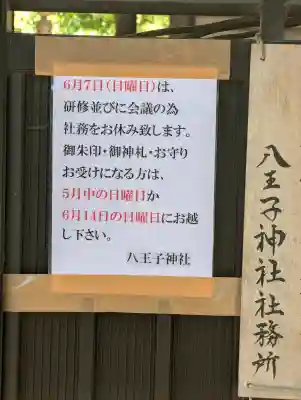 6月7日(日曜日)は、
研修並びに会議の為
社務をお休み致します。
御朱印・御神札・お守り
お受けになる方は、
5月中の日曜日か
6月14日の日曜日にお越
し下さい。
八王子神社
八王子神社社務所